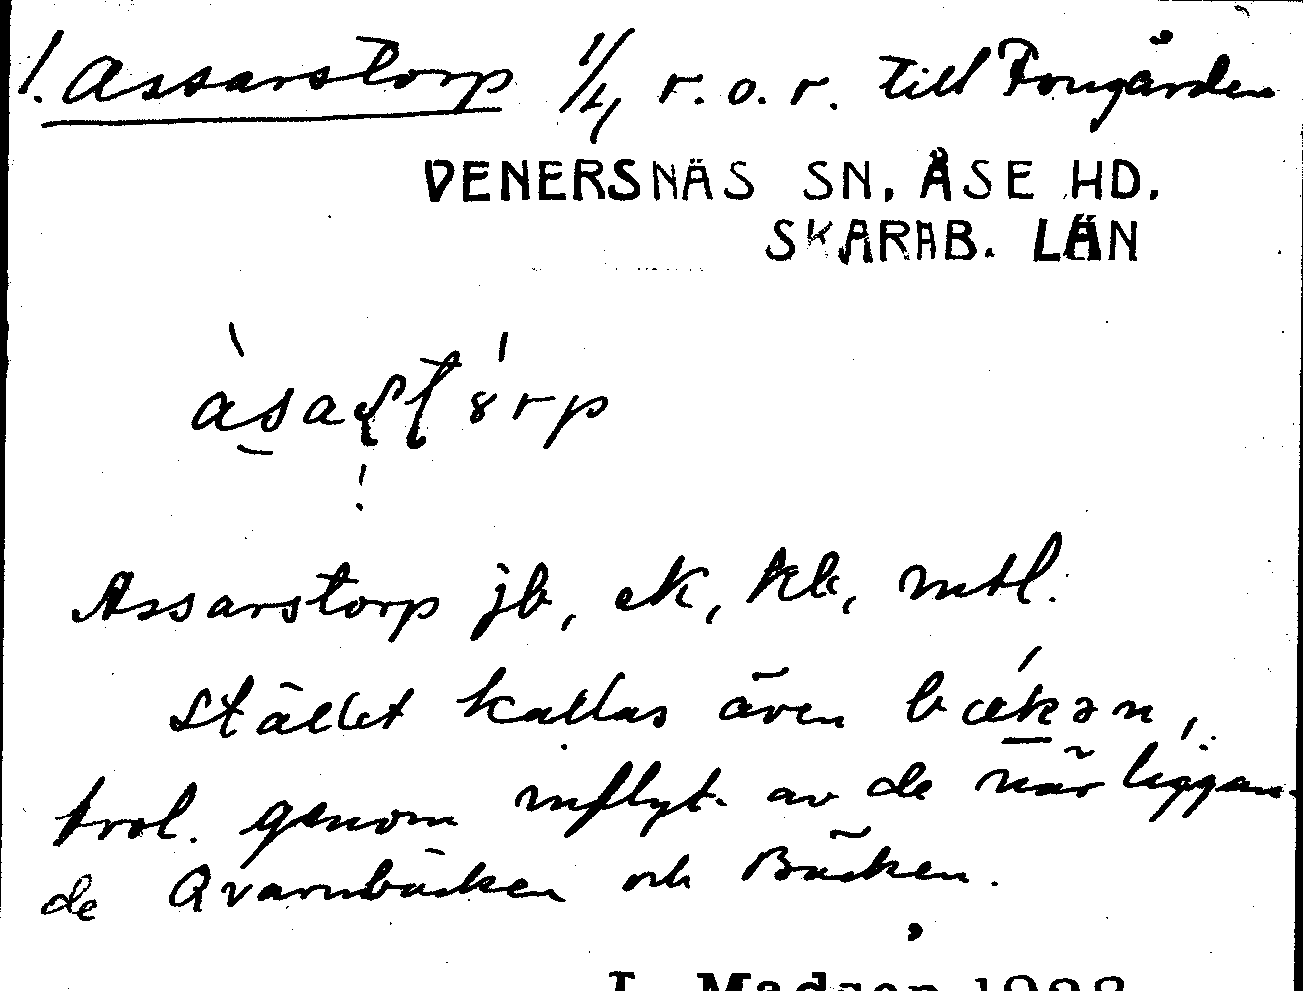 1. Assarstorp 1/4 r. o. r. till Forsgården
VENERSNÄS SN. ÅSE HD.
SKARAB. LÄN
Assarstorp jb, ek, kb, mtl.
Stället kallas även bækən,
trol. genom inflyt. av de när liggan-
de Qvarnbäcken och Bäcken.